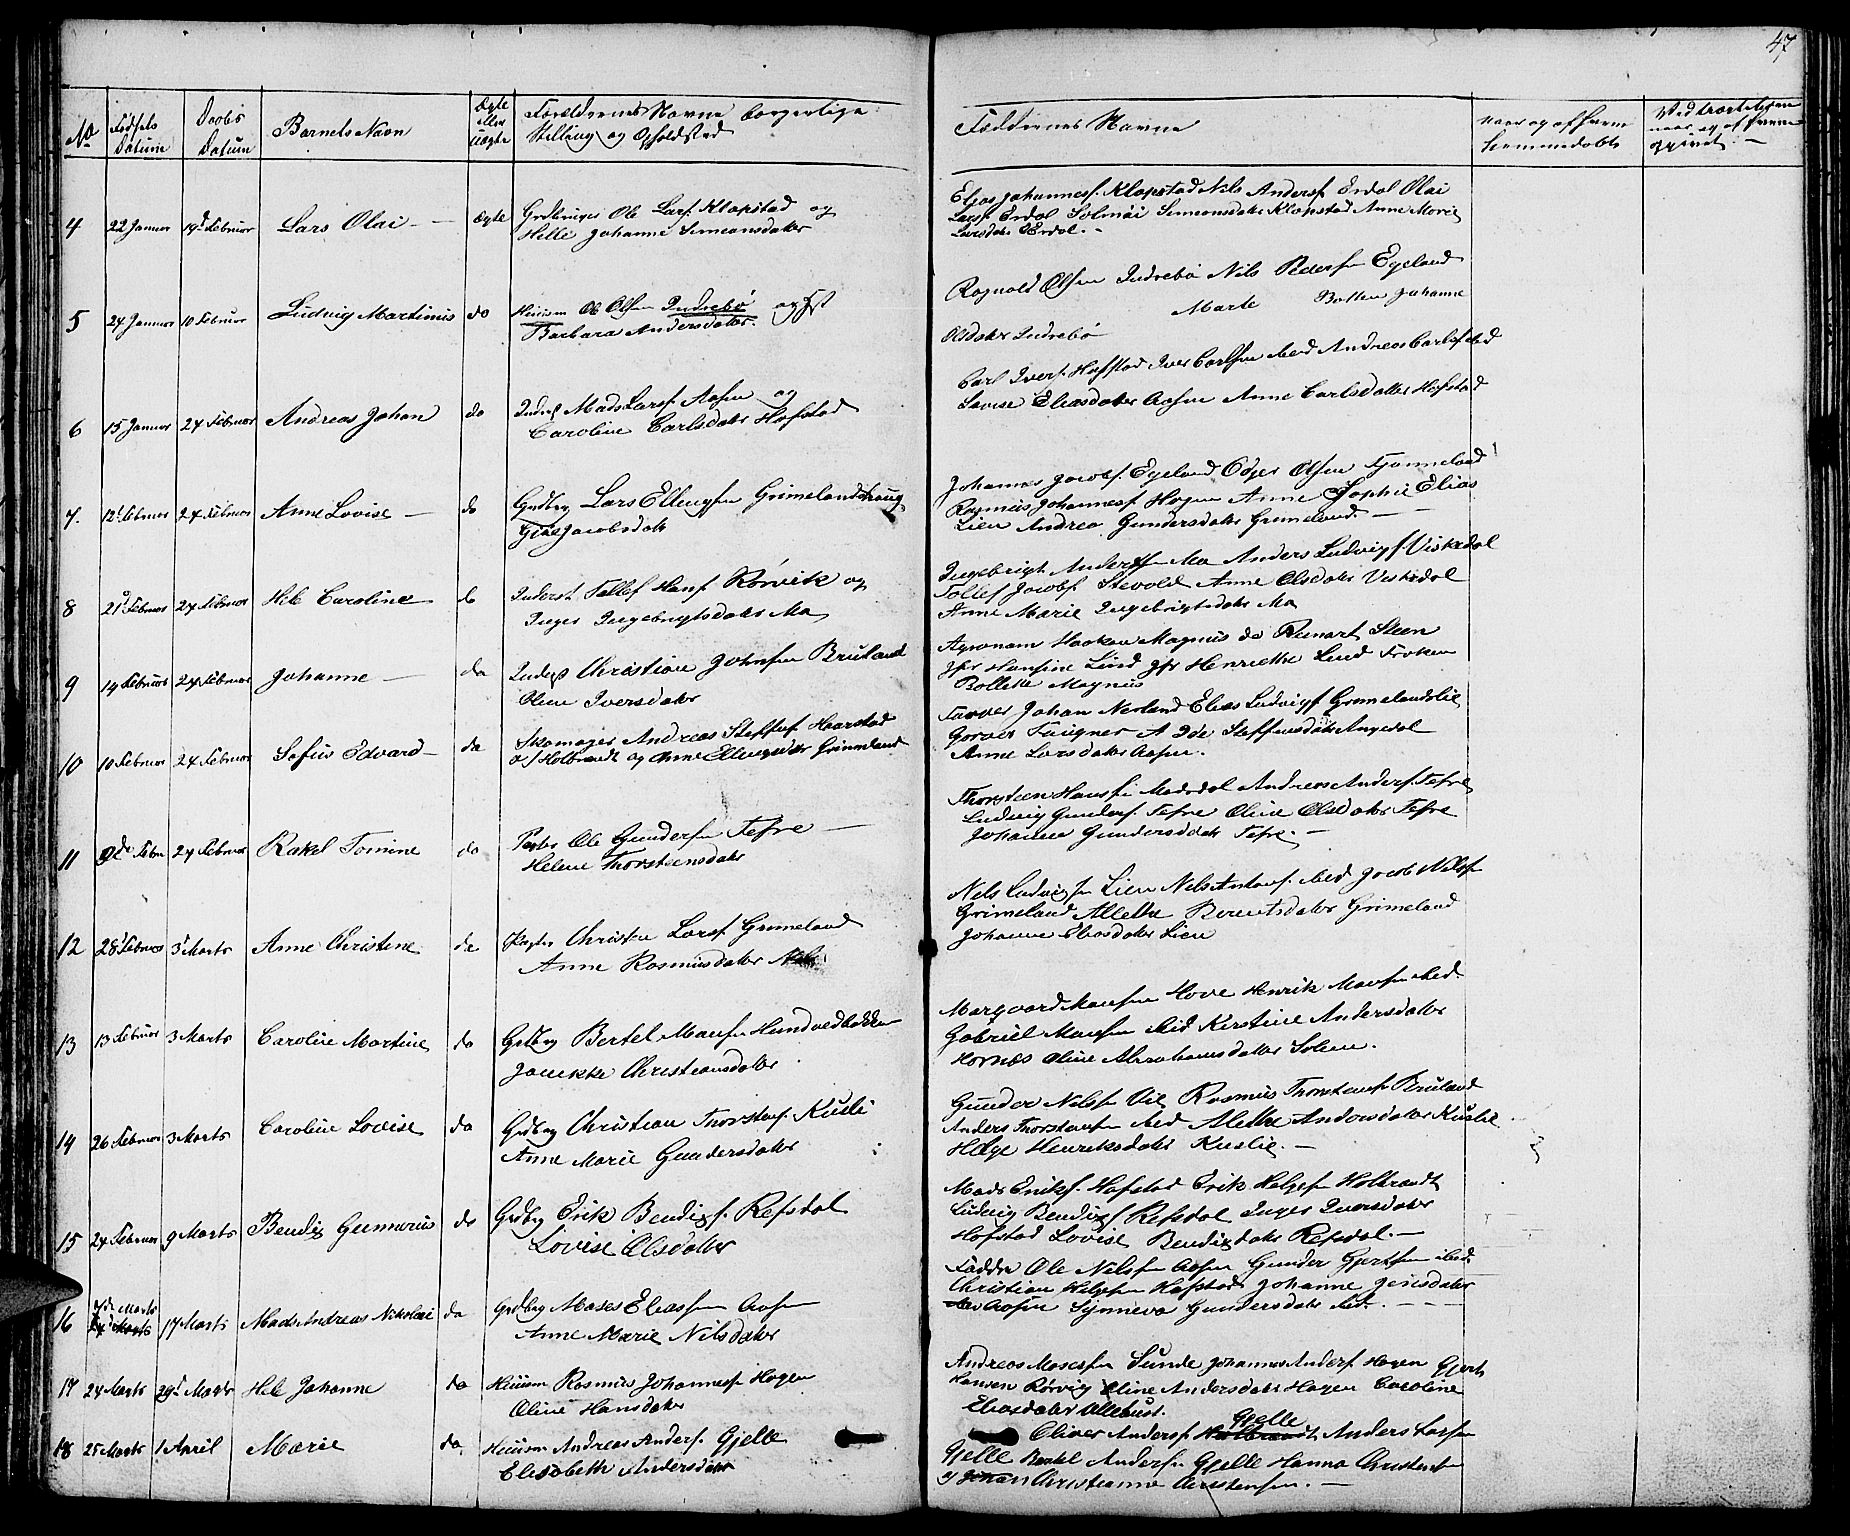 47
No
Fødsels Datum
Daabs Datum
Barnets Navn
Ægte eller Uægte
Forældrenes Navne borgerlige
Stilling og Opholdsted
Faddernes Navne
naar og af hvem
hjemmedøbt
Ved
naar og af hvem
4 22 Januar 19d Februar Lars Olai Ægte Grdbruger Ole Larsf. Klopstad og
Helle Johanne Simeonsdater
Elias Johannesf. Klopstad Nils Andersf Erdal Olai
Larsf Erdal Solmøi Simeonsdater Klopstad Anne Marie
Larsdater Erdal.
5 24 Januar 10 Februar Ludvig Martinus do Huusm Ole Olsen Indrebø og Hst
Barbara Andersdater.
Ragnvald Olsen Indrebø Nils Pedersen Egeland
Marte Botten Johanne
Olsdater Indrebø
6 15 Januar 24 Februar Andreas Johan do Inderst Mads Larsf Aasen og
Caroline Carlsdater Hofstad
Carl Iversf. Hofstad Iver Carlsen ibid Andreas Carlsf ibid
Lovise Eliasdater Aasen Anne Carlsdatter Hofstad
7. 12t Februar 24 Februar Anne Lovise do Grdbrg Lars Ellingsen Grimelandshaug
Gine Jacobsdater
Johannes Jacobsf. Egeland Odger Olsen Fjønneland
Rasmus Johannesf Hagen Anne Sophie Elias
Lien Andrea Gundersdater Grimeland.
8 21d Februar 24 Februar Hele Caroline do Inderst Tollef Hansf Rørvik og
Inger Ingebrigtsdater Mo
Ingebrigt Andersen Mo Anders Ludvigsf. Viskedal
Tollef Jacobsf Stevold Anne Olsdater Viskedal
Anne Marie Ingebrigtsdater Mo
9 14 Februar 24 Februar Johanne do Inderst Christian Johnsen Bruland
Oline Iversdater
Agronom Haakon Magnus do Reinart Steen
Jfr Hansine Lind Jfr Henriette Lind Frøken
Bollette Magnus
10 10 Februar 24 Februar Sofus Edvard do Skomager Andreas Steffesf Haarstad
a/ Holbrandt og Anne Ellingsdater Grimeland
Farver Johan Nerland Elias Ludvigsf Grimelandslie
Garver Faugner A Ide Steffensdater Angedal
Anne Larsdater Aasen.
11 9de Febru 24 Februar Rakel Tomine do Pagter Ole Gundersen Tefre
Helene Thorstensdater
Thorsteen Hansen Modedal Andreas Andersf. Tefre
Ludvig Gundersf. Tefre Oline Olsdater Tefre
Johanne Gundersdater Tefre.
12 28d Februar 3d Marts Anne Christine do Pagter Christen Larsf Grimeland
Anne Rasmusdater
Nels Ludvigsen Lien Nels Antonsf. ibid Jacob Nilsen
Grimeland Alethe Berentsdater Grimeland
Johanne Eliasdater Lien
13 13 Februar 3 Marts Caroline Martine do Grdbrg Bertel Monsen Hundvedbakken
Janikke Christiansdater
Margvard Monsen Hove Henrik Monsen ibid.
Gabriel Monsen ibid Kerstine Andersdater
Hornæs Oline Abrahamsdater Solem.
14 26 Februar 3 Marts Caroline Lovise do Grdbrg Christian Thorstensf. Kusli
Anne Marie Gundersdater
Gunder Nelsen Vie Rasmus Thorstensf Bruland
Anders Thorstensen ibid Alethe Andersdater Kuslie
Helge Henriksdater Kuslie.
15 24 Februar 9 Marts Bendix Gunnerius do Grdbrg Erik Bendixsf. Refsdal
Lovise Olsdater
Mads Eriksf. Hofstad Erik Helgesen Holbrandt
Ludvig Bendixsf Refsdal Inger Iversdater
Hofstad Lovise Bendixdater Refsdal.
16 7de Marts 17 Marts Mads Andreas Nikolai do Grdbrg Moses Eliassen Aasen
Anne Marie Nilsdater
Faddre Ole Nilsen Aasen Gunder Gjertsen ibid
Christian Helgesen Hofstad Johanne Jensdater
Aasen Synneva Gundersdater ibid.
17 24 Marts 29d Marts Hele Johanne do Huusm Rasmus Johannesen Hagen
Oline Hansdater
Andreas Mosessen Sunde Johannes Andersf. Hagen Gjert
Hansen Rørvig Eline Andersdater Hagen Caroline
Eliasdater Ollebust.
18 25 Marts 1 April Marie do Huusm Andreas Andersf. Gjelle
Elisabeth Andersdater
Oliver Andersf. Gjelle Anders Larsen
Gjelle Bertel Andersen Gjelle Hanna Christens
Christianne Christensen.